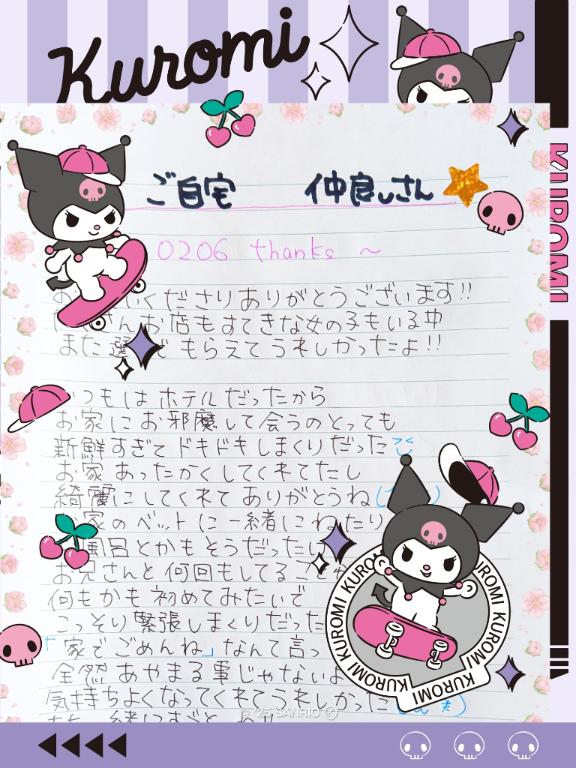 Kuromi
KUROMI
ご自宅 仲良しさん
0206 thanks ~
くださりありがとうございます!!
お店もすてきな女の子もいる中
また選んでもらえてうれしかったよ!!
つもはホテルだったから
お家にお邪魔して会うのとっても
新鮮すぎてドキドキしまくりだった
お家あったかくしてくれてたし
綺麗にしてくれてありがとうね
家のベットに一緒にねたり
風呂とかもそうだったし
お兄さんと何回もしてるこ
何もかも初めてみたいで
こっそり緊張しまくりだった
「家でごめんね」なんて言っ
全然あやまる事じゃないよ
気持ちよくなってくれてうれしかった
KUROMI KUROMI KUROMI KUROMI KUROMI
KUROMI
© '25 SANRIO